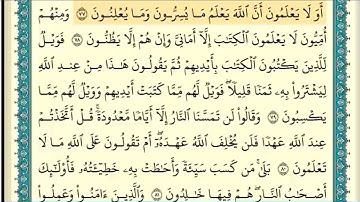 أَوَلَا يَعْلَمُونَ أَنَّ ٱللَّهَ يَعْلَمُ مَا يُسِرُّونَ وَمَا يُعْلِنُونَ ٧٧ وَمِنْهُمْ
أُمِّيُّونَ لَا يَعْلَمُونَ ٱلْكِتَٰبَ إِلَّآ أَمَانِىَّ وَإِنْ هُمْ إِلَّا يَظُنُّونَ ٧٨ فَوَيْلٌ
لِّلَّذِينَ يَكْتُبُونَ ٱلْكِتَٰبَ بِأَيْدِيهِمْ ثُمَّ يَقُولُونَ هَٰذَا مِنْ عِندِ ٱللَّهِ
لِيَشْتَرُوا۟ بِهِۦ ثَمَنًا قَلِيلًا ۖ فَوَيْلٌ لَّهُم مِّمَّا كَتَبَتْ أَيْدِيهِمْ وَوَيْلٌ لَّهُم مِّمَّا
يَكْسِبُونَ ٧٩ وَقَالُوا۟ لَن تَمَسَّنَا ٱلنَّارُ إِلَّآ أَيَّامًا مَّعْدُودَةً ۚ قُلْ أَتَّخَذْتُمْ
عِندَ ٱللَّهِ عَهْدًا فَلَن يُخْلِفَ ٱللَّهُ عَهْدَهُۥٓ ۖ أَمْ تَقُولُونَ عَلَى ٱللَّهِ مَا لَا
تَعْلَمُونَ ٨٠ بَلَىٰ مَن كَسَبَ سَيِّئَةً وَأَحَٰطَتْ بِهِۦ خَطِيٓـَٔتُهُۥ فَأُو۟لَٰٓئِكَ
أَصْحَٰبُ ٱلنَّارِ ۖ هُمْ فِيهَا خَٰلِدُونَ ٨١ وَٱلَّذِينَ ءَامَنُوا۟ وَعَمِلُوا۟